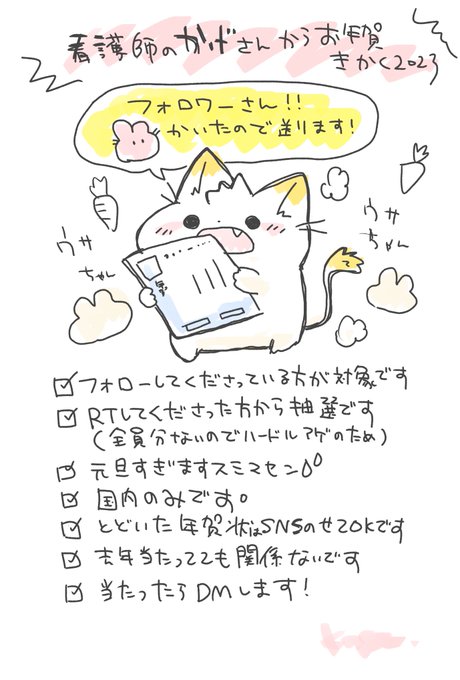 看護師のかげさんからお年賀
きかく2023
フォロワーさん!!
かいたので送ります!
ウサ
ちゃん
ウサ
ちゃん
フォローしてくださっている方が対象です
RTしてくださった方から抽選です
(全員分ないのでハードルアゲのため)
元旦すぎますスミマセン
国内のみです。
とどいた年賀状はSNSのせてOKです
去年当たってても関係ないです
当たったらDMします!